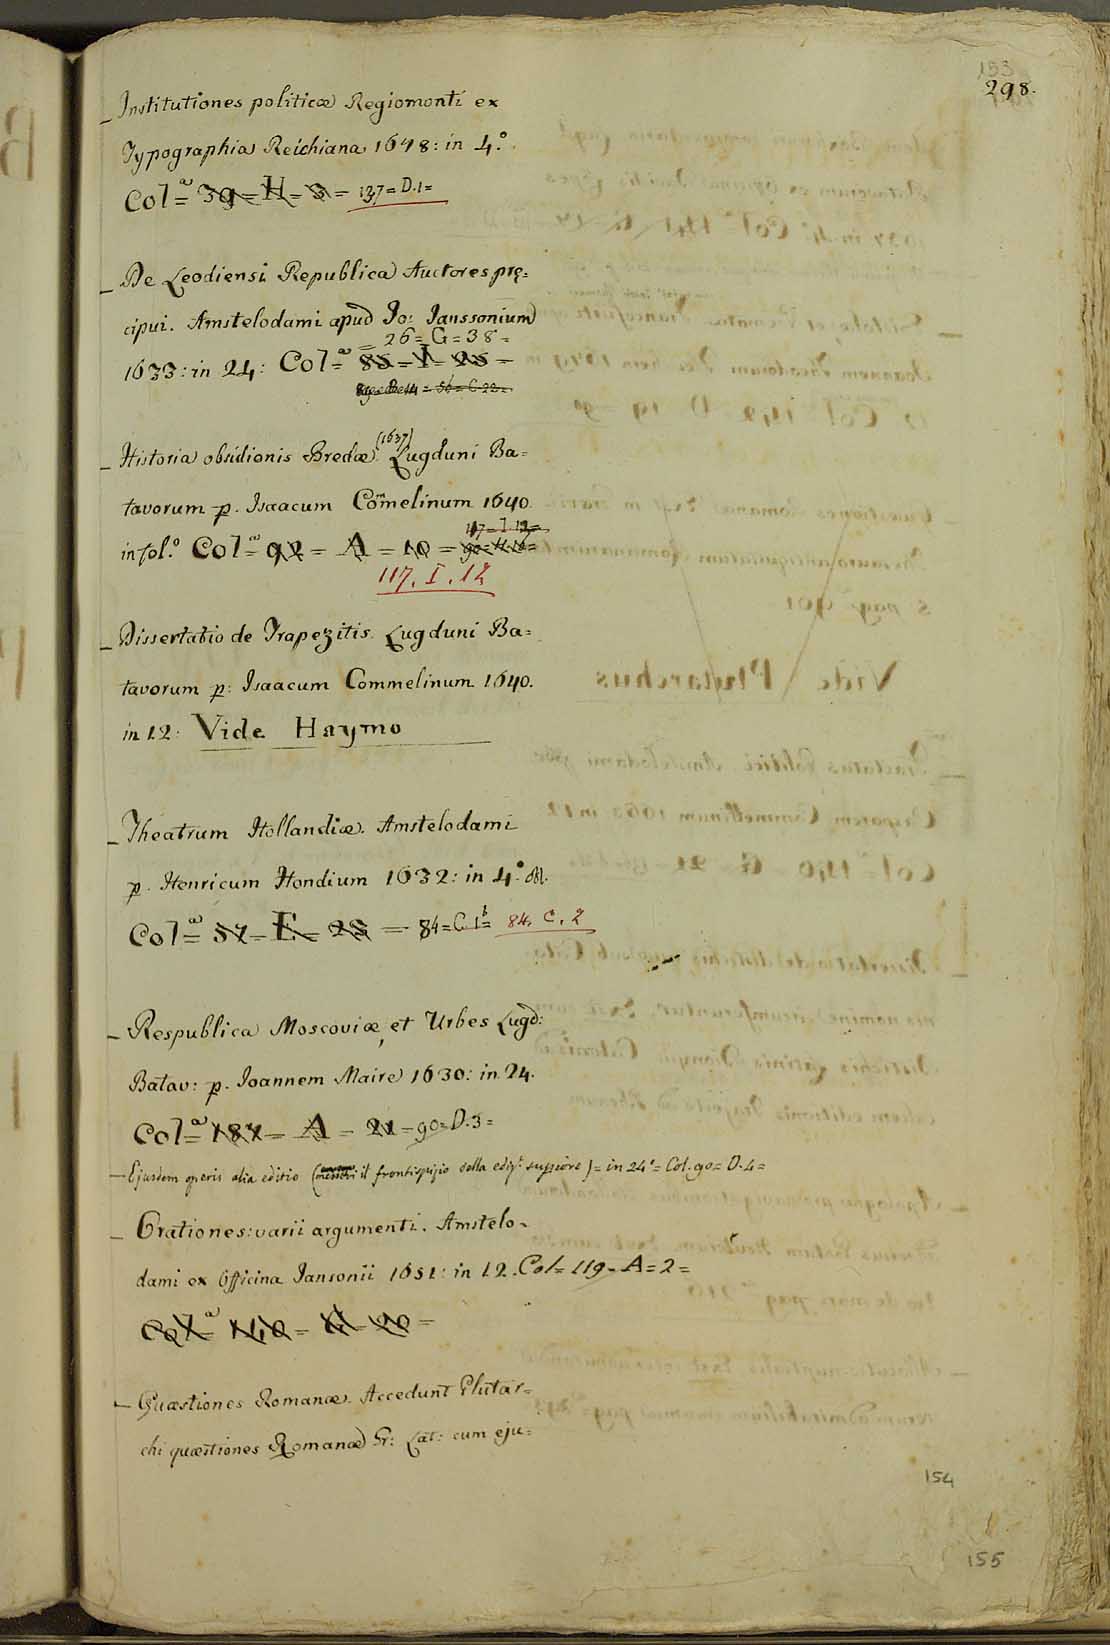 153
298.
_ Institutiones politicæ Regiomonti ex
Typographia Reichiana 1648: in 4.°
Col.ª = 39 = H = 3 = 137 = D.1 =
_ De Leodiensi Republica Auctores prę=
cipui. Amstelodami apud Jo: Janssonium
= 26 = G = 38 =
1633: in 24: Col.ª = 85 = I = 25 =
= 56 = C. 22 =
_ Historia obsidionis Bredæ (1637) Lugduni Ba=
tavorum p. Isaacum Com̃elinum 1640.
117 = I. 12 =
in fol.° Col.ª = 92 = A = 10 =
117. I. 12
_ Dissertatio de Trapezitis. Lugduni Ba=
tavorum p: Isaacum Commelinum 1640.
in 12: Vide Haymo
_ Theatrum Hollandiæ. Amstelodami
p. Henricum Hondium 1632: in 4.° obl.
Col.ª = 57 = E = 28 = 84 = C. 1 b = 84. C. 2
_ Respublica Moscoviæ, et Urbes Lugd:
Batav: p. Joannem Maire 1630: in 24.
Col.ª = 187 = A = 21 = 90 = D. 3 =
_ Ejusdem operis alia editio ( il frontispizio della ediz.e superiore ) = in 24° = Col. 90 = D. 4 =
_ Orationes: varii argumenti. Amstelo=
dami ex Officina Jansonii 1651: in 12. Col = 119 = A = 2 =
Col.ª = 140 = G = 20 =
_ Quæstiones Romanæ. Accedunt Plutar=
chi quæstiones Romanæ Gr: Lat: cum eju=
154
155